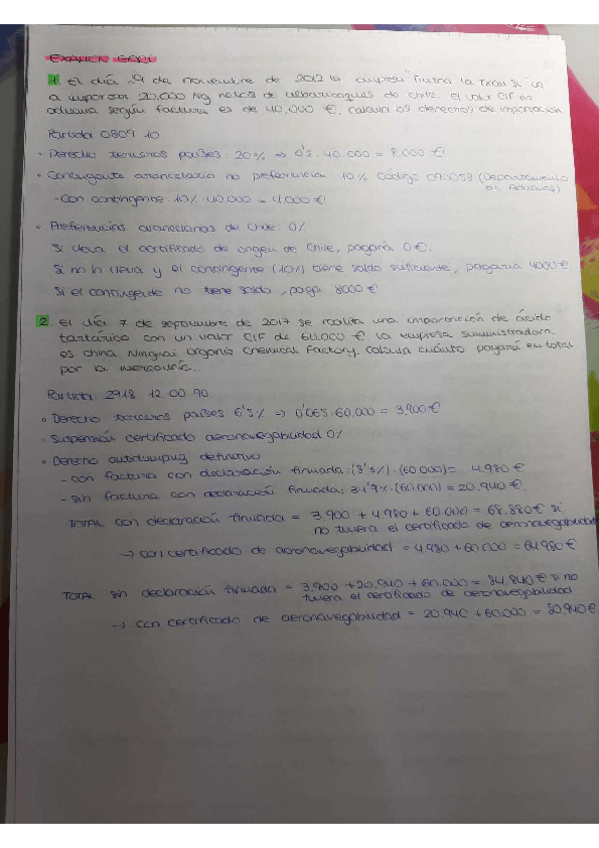 EXAMEN
1 El día 9 de noviembre de 2012 la empresa Frutna la
a importar 20.000 Kg netos de albaricoques de Chile. El valor CIF en
aduana según factura es de 40.000 €. Calcula los derechos de importación
Partida 0809 10
• Derecho terceros países: 20% => 0'2 · 40.000 = 8.000 €
• Contingente arancelario no preferencia 10% Código 090058 (Departamento
de Aduanas)
- Con contingente: 10% · 40.000 = 4.000 €
• Preferencias arancelarias de Chile: 0%
Si lleva el certificado de origen de Chile, pagaría 0 €.
Si no lo lleva y el contingente (10%) tiene saldo suficiente, pagaría 4000 €
Si el contingente no tiene saldo, paga 8000 €
2 El día 7 de septiembre de 2017 se realiza una importación de ácido
tartárico con un valor CIF de 60.000 €. La empresa suministradora
es china Ninghai Organic Chemical Factory. Calcula cuánto pagará en total
por la mercancía.
Partida: 2918 12 00 90
• Derecho terceros países: 6'5% => 0'065 · 60.000 = 3.900 €
• Suspensión certificado aeronavegabilidad 0%
• Derecho antidumping definitivo
- con factura con declaración firmada: (8'3%) · (60.000) = 4.980 €
- sin factura con declaración firmada: 34'9% · (60.000) = 20.940 €.
TOTAL con declaración firmada = 3.900 + 4.980 + 60.000 = 68.880 € si
no tuviera el certificado de aeronavegabilidad
-> con certificado de aeronavegabilidad = 4.980 + 60.000 = 64.980 €
TOTAL sin declaración firmada = 3.900 + 20.940 + 60.000 = 84.840 € si no
tuviera el certificado de aeronavegabilidad
-> con certificado de aeronavegabilidad = 20.940 + 60.000 = 80.940 €